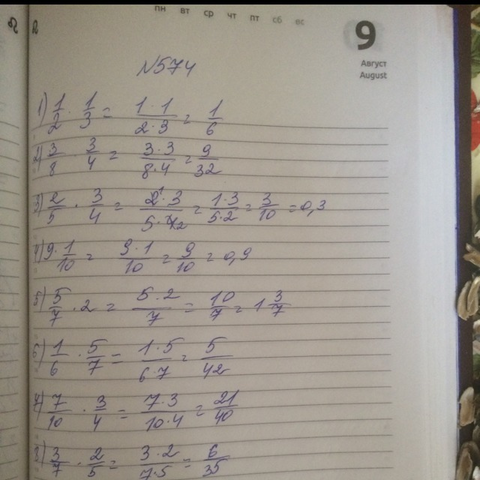 пн вт ср чт пт сб вс
9
Август
August
N574
1) 1/2 · 1/3 = 1·1/2·3 = 1/6
2) 3/8 · 3/4 = 3·3/8·4 = 9/32
3) 2/5 · 3/4 = 2¹·3/5·4₂ = 1·3/5·2 = 3/10 = 0,3
4) 9 · 1/10 = 9·1/10 = 9/10 = 0,9
5) 5/7 · 2 = 5·2/7 = 10/7 = 1 3/7
6) 1/6 · 5/7 = 1·5/6·7 = 5/42
7) 7/10 · 3/4 = 7·3/10·4 = 21/40
8) 3/7 · 2/5 = 3·2/7·5 = 6/35